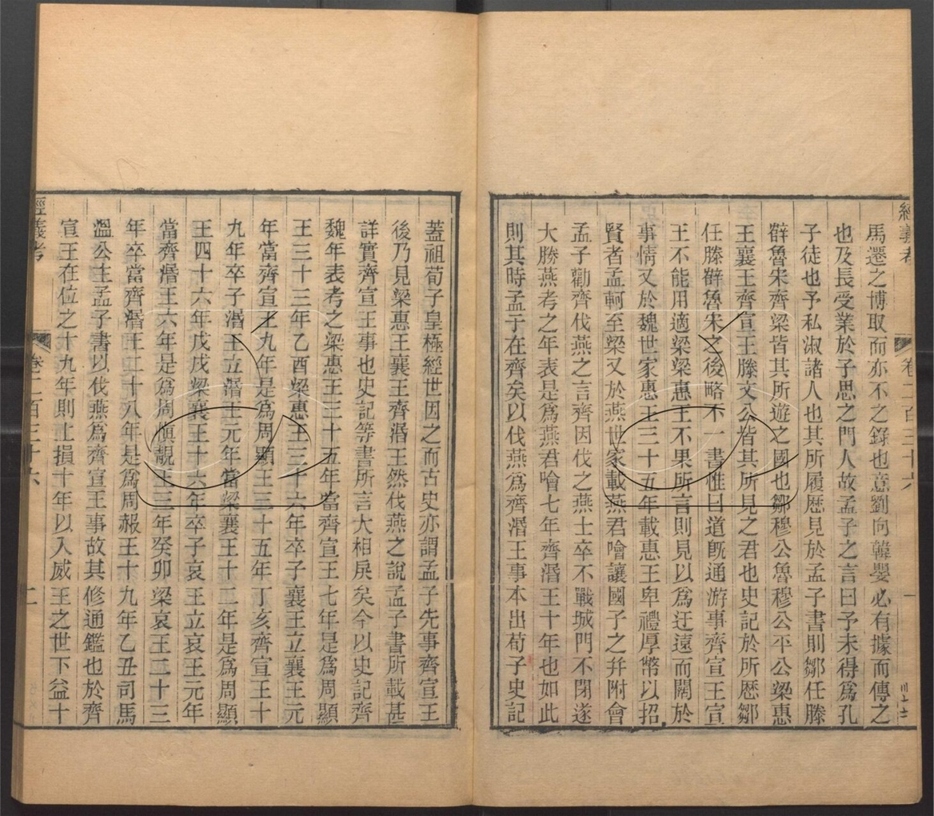 經義考 卷二百三十六 一
馬遷之博取而亦不之錄也意劉向韓嬰必有據而傳之
也及長受業於子思之門人故孟子之言曰予未得爲孔
子徒也予私淑諸人也其所履歷見於孟子書則鄒任滕
薛魯宋齊梁皆其所遊之國也鄒穆公魯穆公平公梁惠
王襄王齊宣王滕文公皆其所見之君也史記於所歷鄒
任滕薛魯宋之後略不一書惟曰道旣通游事齊宣王宣
王不能用適梁梁惠王不果所言則見以爲迂遠而闊於
事情又於魏世家惠王三十五年載惠王卑禮厚幣以招
賢者孟軻至梁又於燕世家載燕君噲讓國子之幷附會
孟子勸齊伐燕之言齊因伐之燕士卒不戰城門不閉遂
大勝燕考之年表是爲燕君噲七年齊湣王十年也如此
則其時孟子在齊矣以伐燕爲齊湣王事本出荀子史記
蓋祖荀子皇極經世因之而古史亦謂孟子先事齊宣王
後乃見梁惠王襄王齊湣王然伐燕之說孟子書所載甚
詳實齊宣王事也史記等書所言大相戾矣今以史記齊
魏年表考之梁惠王三十五年當齊宣王七年是爲周顯
王三十三年乙酉梁惠王三十六年卒子襄王立襄王元
年當齊宣王九年是爲周顯王三十五年丁亥齊宣王十
九年卒子湣王立湣王元年當梁襄王十二年是爲周顯
王四十六年戊戌梁襄王十六年卒子哀王立哀王元年
當齊湣王六年是爲周愼靚王三年癸卯梁哀王二十三
年卒當齊湣王二十八年是爲周赧王十九年乙丑司馬
溫公主孟子書以伐燕爲齊宣王事故其修通鑑也於齊
宣王在位之十九年則上損十年以入威王之世下益十
經義考 卷二百三十六 二